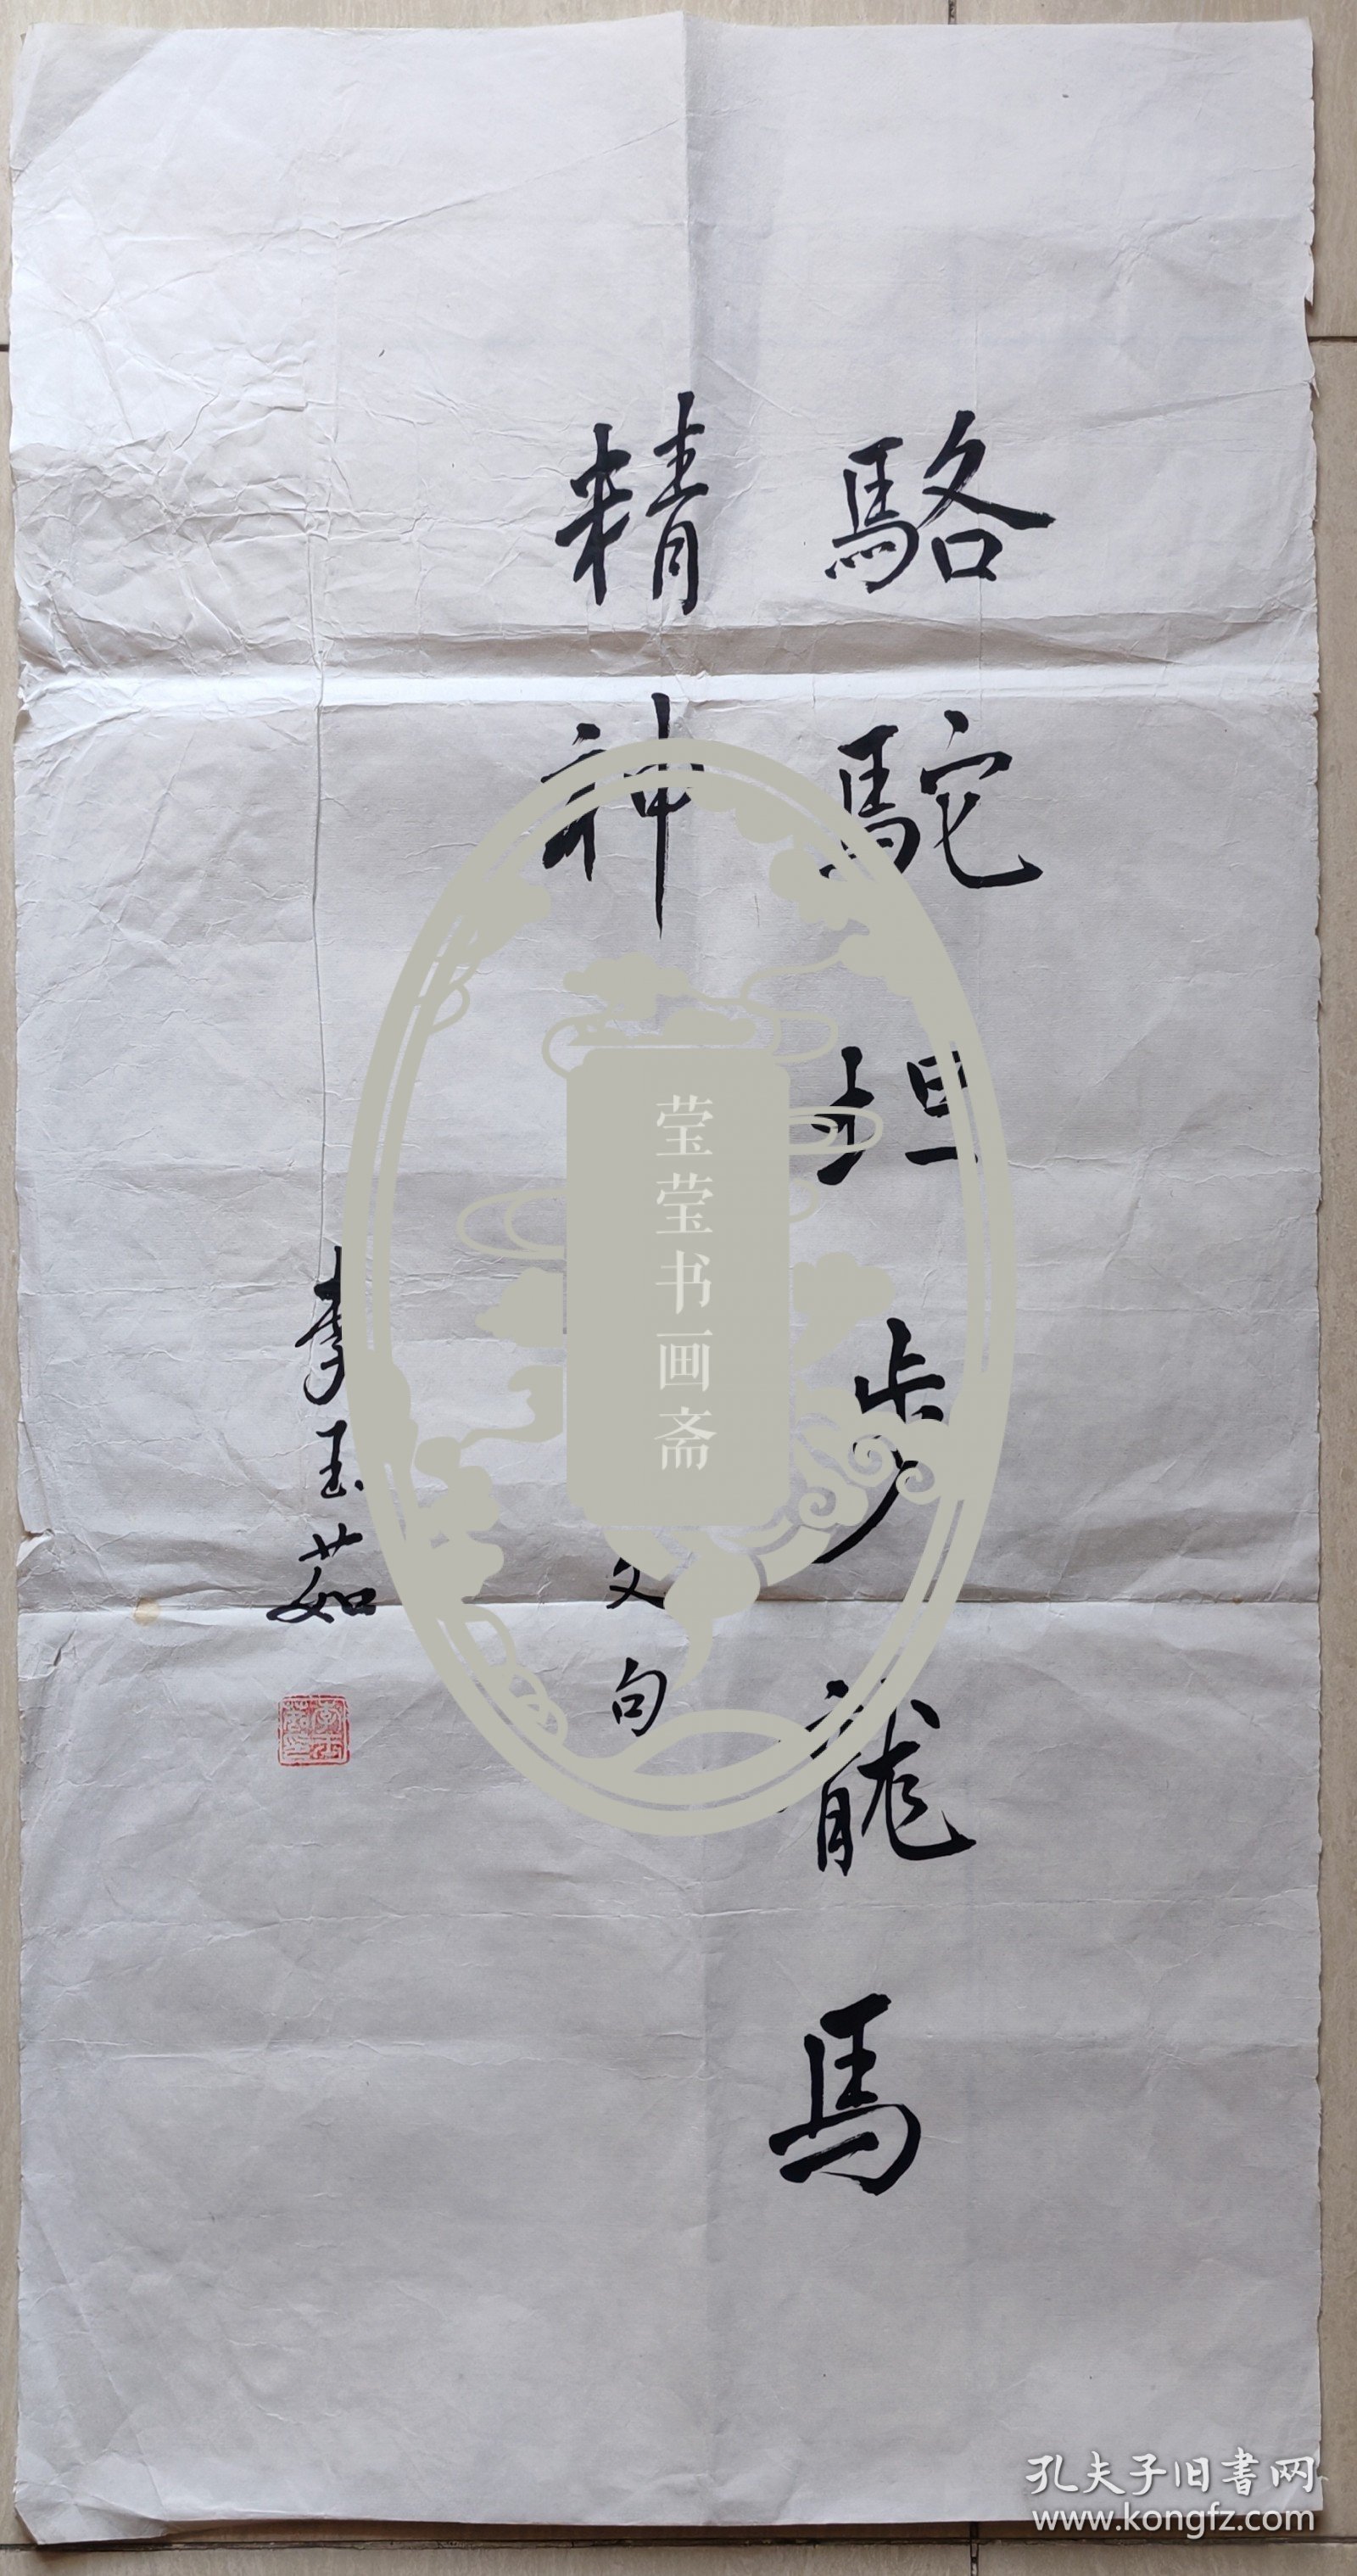 駱駝坦步龍馬
精神
文句
李玉茹
莹莹书画斋
孔夫子旧書网
www.kongfz.com